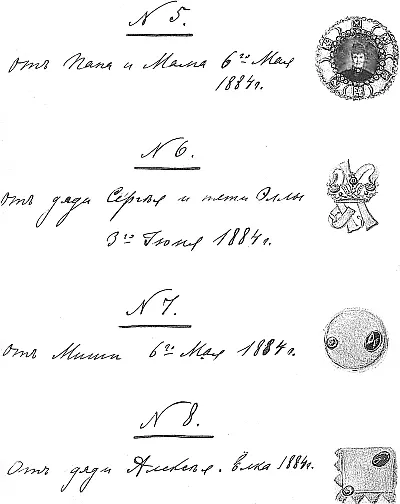 N 5.
отъ Папа и Мама 6го Мая
1884 г.
N 6.
отъ дяди Сергѣя и тети Эллы
3го Іюня 1884 г.
N 7.
отъ Миши 6го Мая 1884 г.
N 8.
Отъ дяди Алексѣя. Елка 1884 г.